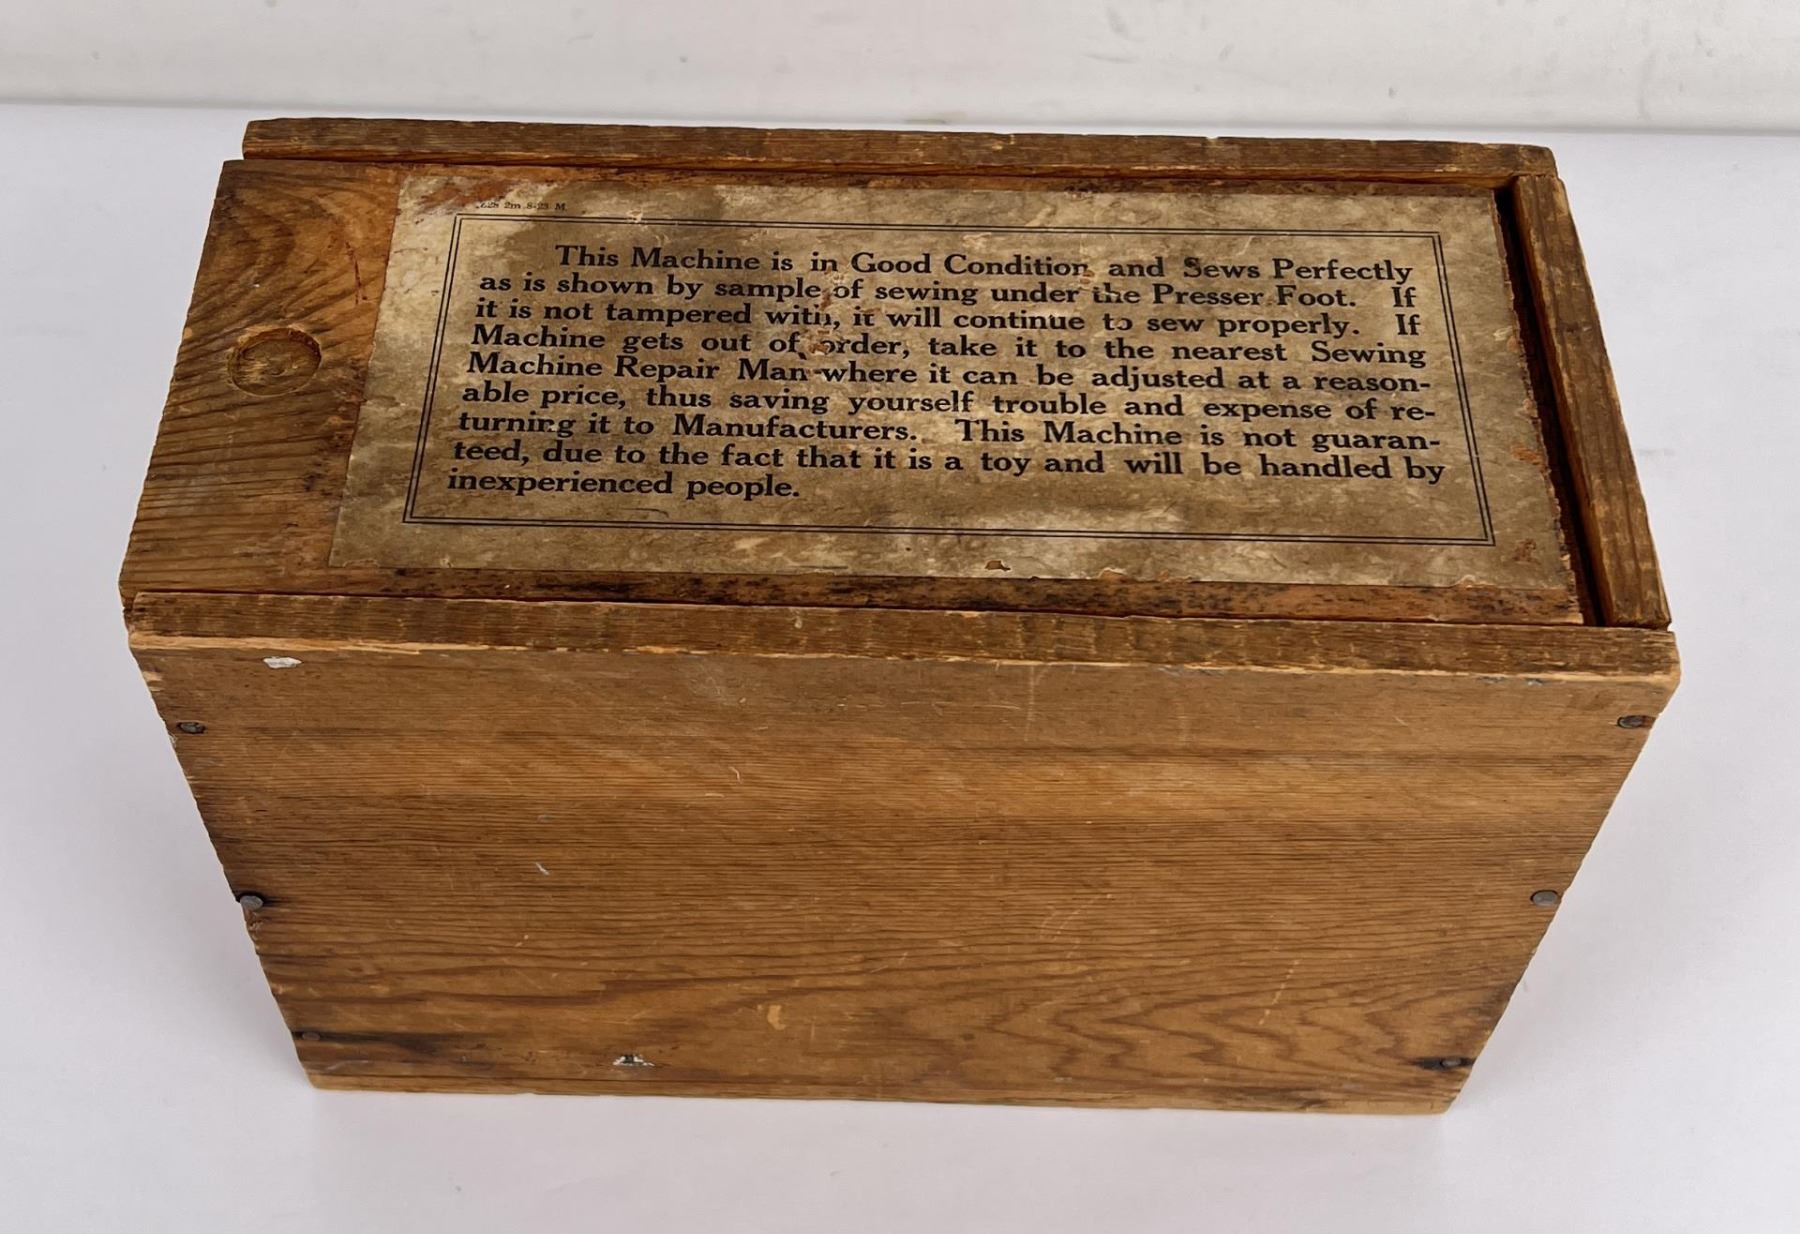 2m 8-23 M.
This Machine is in Good Condition and Sews Perfectly
as is shown by sample of sewing under the Presser Foot. If
it is not tampered with, it will continue to sew properly. If
Machine gets out of order, take it to the nearest Sewing
Machine Repair Man where it can be adjusted at a reason-
able price, thus saving yourself trouble and expense of re-
turning it to Manufacturers. This Machine is not guaran-
teed, due to the fact that it is a toy and will be handled by
inexperienced people.